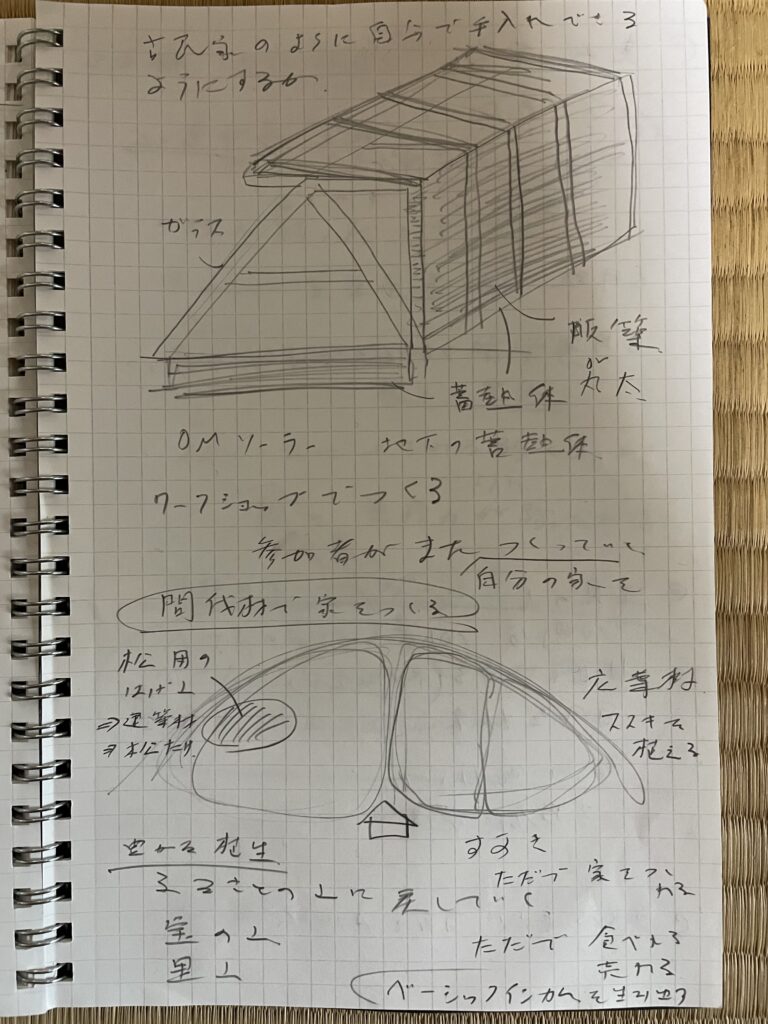 古民家のように自分で手入れできる
ようにするか
ガラス
版築
か
丸太
蓄熱体
OMソーラー 地下の蓄熱体
ワークショップでつくる
参加者がまたつくっていく
自分の家を
間伐材で家をつくる
松用の
はげ山
⇒建築材
⇒松たけ
広葉材
ススキを
植える
豊かな植生
ふるさとの山に戻していく
宝の山
里山
すすき
ただで 家をつくれる
ただで 食べれる
売れる
ベーシックインカムを生み出す